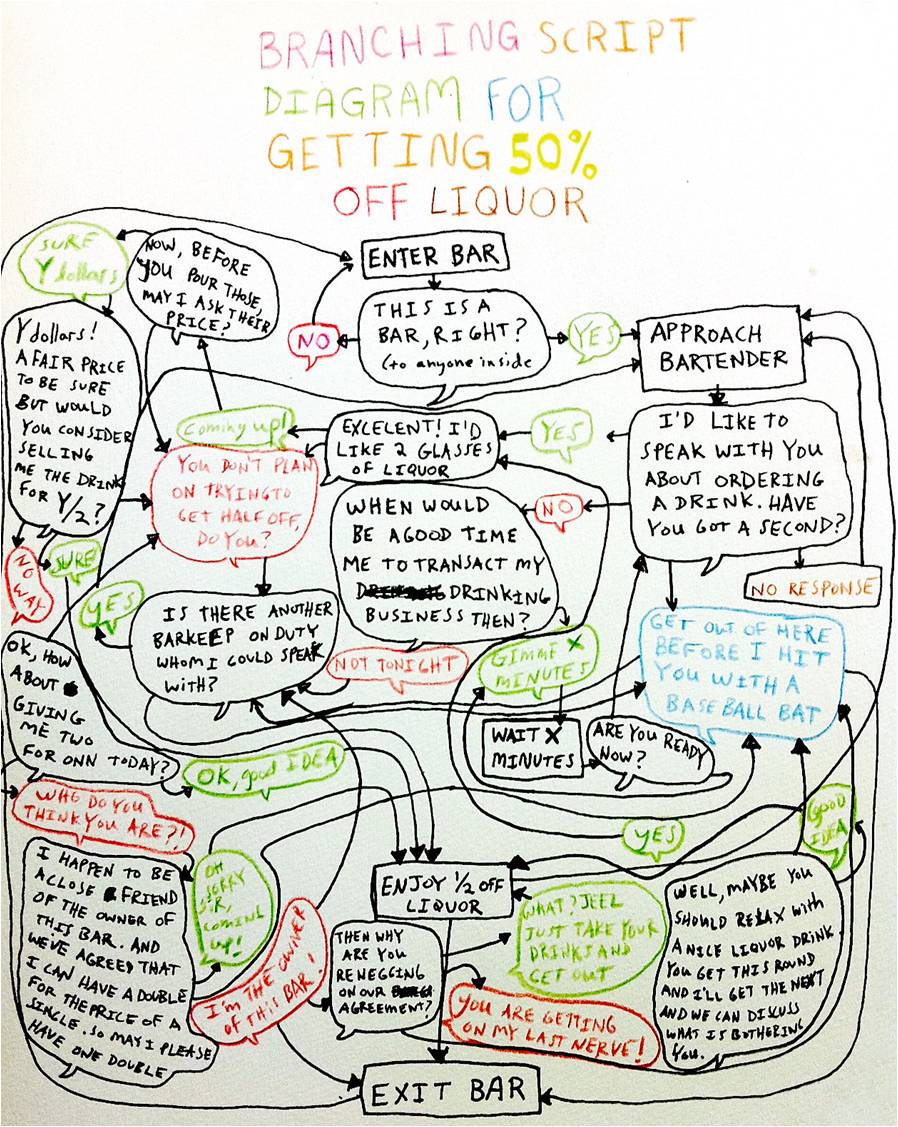 BRANCHING SCRIPT
DIAGRAM FOR
GETTING 50%
OFF LIQUOR
ENTER BAR
THIS IS A
BAR, RIGHT?
(to anyone inside
NO
YES
APPROACH
BARTENDER
I'D LIKE TO
SPEAK WITH YOU
ABOUT ORDERING
A DRINK. HAVE
YOU GOT A SECOND?
NO RESPONSE
YES
EXCELENT! I'D
LIKE 2 GLASSES
OF LIQUOR
Coming up!
NOW, BEFORE
YOU POUR THOSE,
MAY I ASK THEIR
PRICE?
SURE
Y dollars
Y dollars!
A FAIR PRICE
TO BE SURE
BUT WOULD
YOU CONSIDER
SELLING
ME THE DRINK
FOR Y/2?
NO
WAY
SURE
YOU DON'T PLAN
ON TRYING TO
GET HALF OFF,
DO YOU?
NO
WHEN WOULD
BE A GOOD TIME
ME TO TRANSACT MY
DRINKING
BUSINESS THEN?
NOT TONIGHT
GIMME X
MINUTES
WAIT X
MINUTES
ARE YOU READY
NOW?
YES
IS THERE ANOTHER
BARKEEP ON DUTY
WHOM I COULD SPEAK
WITH?
YES
GET OUT OF HERE
BEFORE I HIT
YOU WITH A
BASEBALL BAT
OK, HOW
ABOUT
GIVING
ME TWO
FOR ONN TODAY?
OK, good IDEA
WHO DO YOU
THINK YOU ARE?!
I HAPPEN TO BE
A CLOSE FRIEND
OF THE OWNER OF
THIS BAR. AND
WE'VE AGREED THAT
I CAN HAVE A DOUBLE
FOR THE PRICE OF A
SINGLE. SO MAY I PLEASE
HAVE ONE DOUBLE
OH
SORRY
SIR,
coming
up!
I'm THE OWNER
OF THIS BAR!
ENJOY 1/2 OFF
LIQUOR
THEN WHY
ARE YOU
RENEGGING
ON OUR
AGREEMENT?
WHAT? JEEL
JUST TAKE YOUR
DRINKS AND
GET OUT
YOU ARE GETTING
ON MY LAST NERVE!
WELL, MAYBE YOU
SHOULD RELAX with
A NICE LIQUOR DRINK.
YOU GET THIS ROUND
AND I'LL GET THE NEXT
AND WE CAN DISCUSS
WHAT IS BOTHERING
YOU.
GOOD
IDEA
EXIT BAR